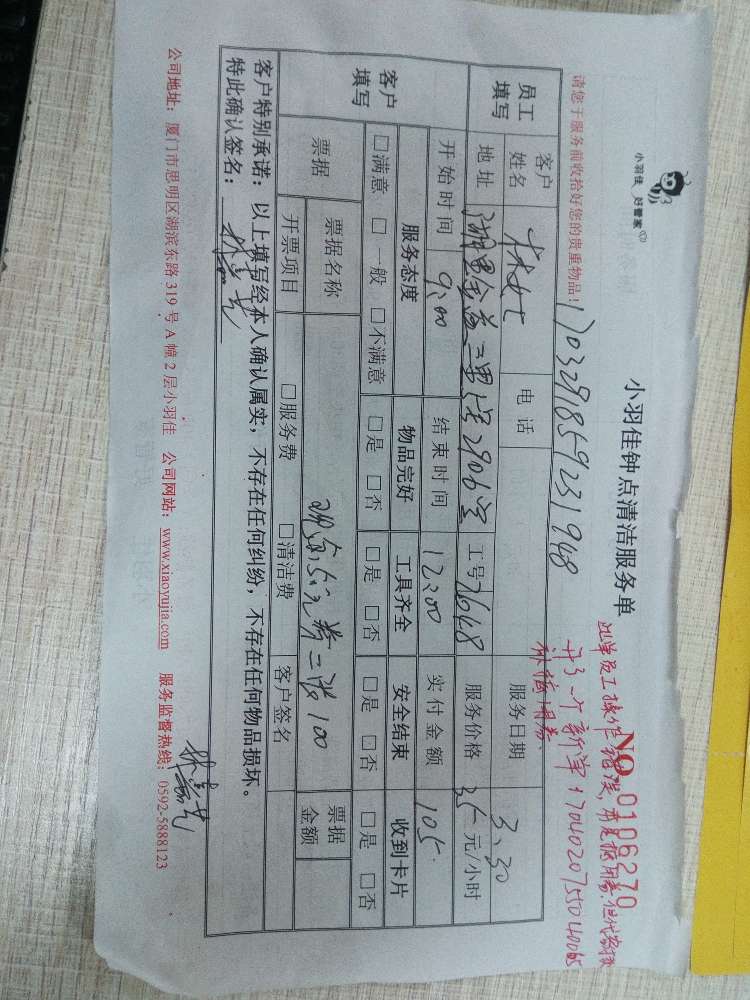 小羽佳 好管家
小羽佳钟点清洁服务单
NO 0106270
请您于服务前收拾好您的贵重物品！
1703291859231948
此单员工操作错误,
开了一个新单
补偿用券
员工填写 客户姓名 林女士 电话 服务日期 3.30
地址 2906室 工号 2648 服务价格 35元/小时
客户填写 开始时间 9:00 结束时间 12:00 实付金额 105
服务态度 物品完好 工具齐全 安全结束 收到卡片
□满意 □一般 □不满意 □是 □否 □是 □否 □是 □否 □是 □否
票据 票据名称 现金5元券二张100 票据金额
开票项目 □服务费 □清洁费 客户签名
客户特别承诺：以上填写经本人确认属实，不存在任何纠纷，不存在任何物品损坏。
特此确认签名：
公司地址：厦门市思明区湖滨东路319号A幢2层小羽佳 公司网站：www.xiaoyujia.com 服务监督热线：0592-5888123